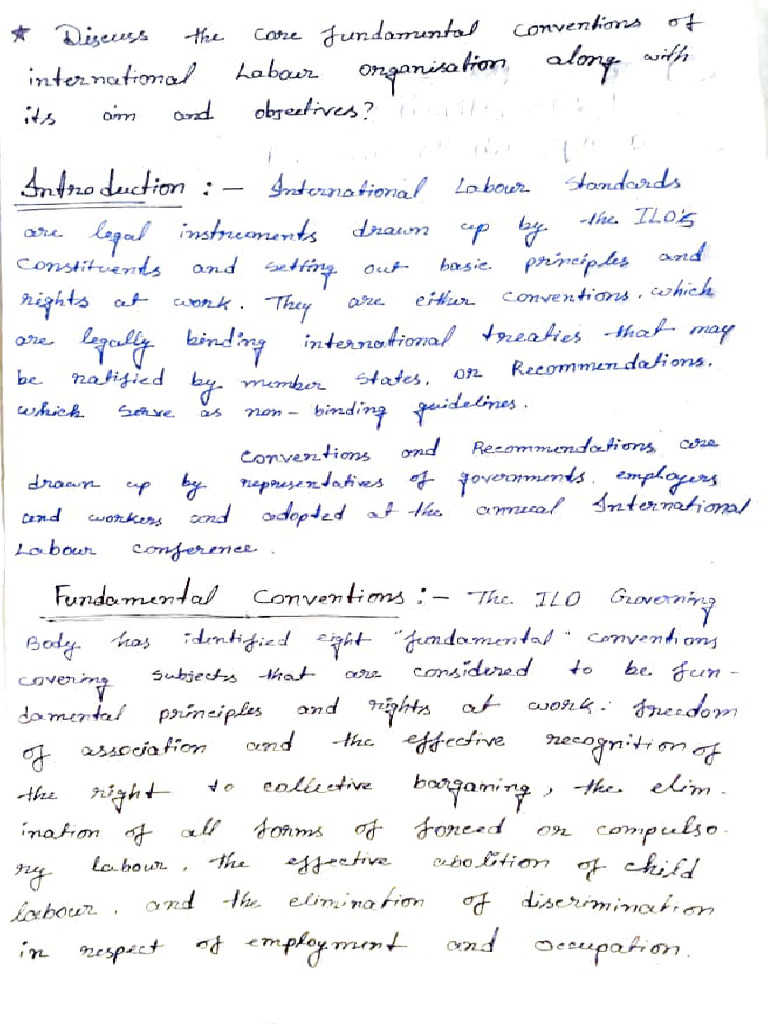 * Discuss the core fundamental conventions of
international Labour organisation along with
its aim and objectives?
Introduction :- International Labour Standards
are legal instruments drawn up by the ILO's
constituents and setting out basic principles and
rights at work. They are either conventions, which
are legally binding international treaties that may
be ratified by member states, or Recommendations,
which serve as non-binding guidelines.
Conventions and Recommendations are
drawn up by representatives of governments, employers
and workers and adopted at the annual International
Labour conference.
Fundamental Conventions :- The ILO Governing
Body has identified eight "fundamental" conventions
covering subjects that are considered to be fun-
damental principles and rights at work: freedom
of association and the effective recognition of
the right to collective barganing, the elim-
ination of all forms of forced or compulso-
ry labour, the effective abolition of child
labour, and the elimination of discrimination
in respect of employment and occupation.